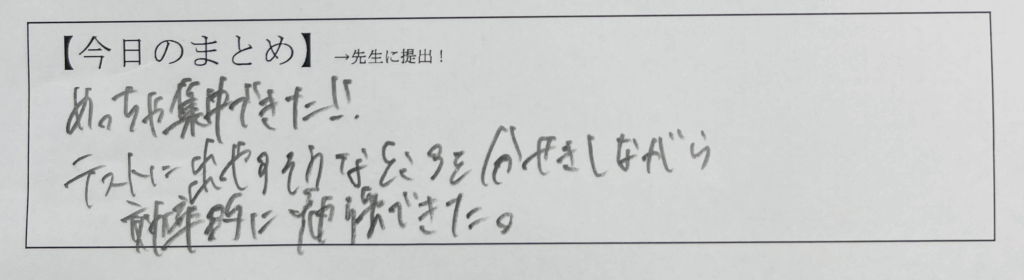 【今日のまとめ】 →先生に提出！
めっちゃ集中できた!!
テストに出やすそうなところを分せきしながら
効率的に勉強できた。